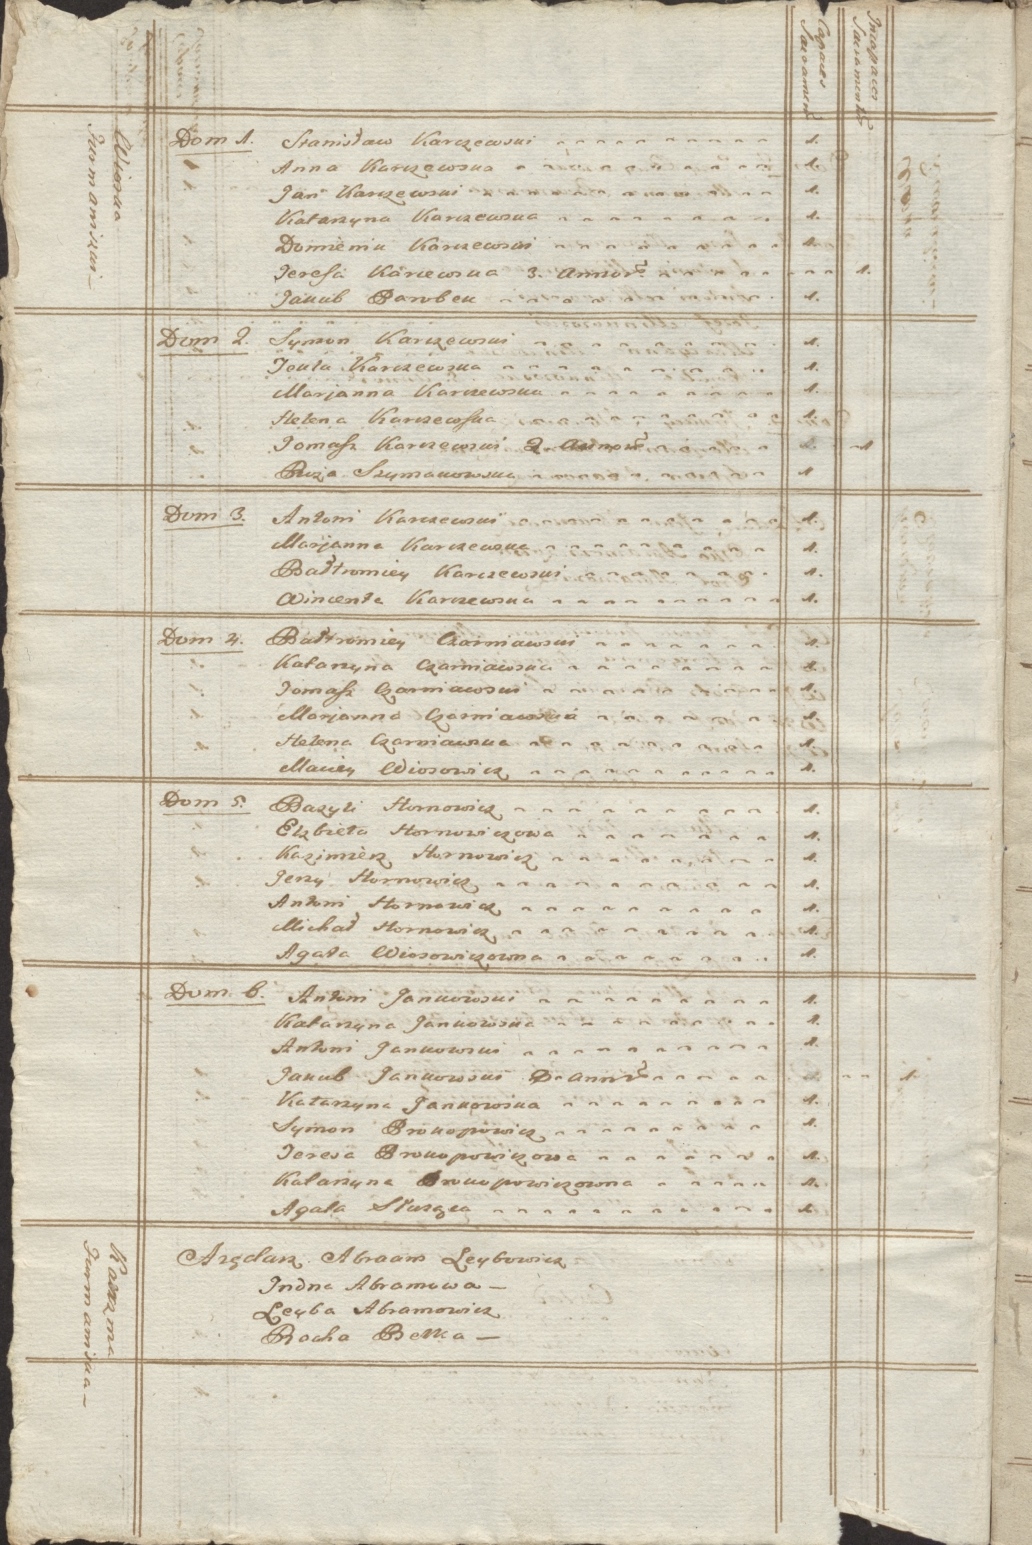 Capaces Sacramen
Incapaces Sacramento
Wioska Furmaniszki —
Dom 1. Stanisław Karczewski 1.
Anna Karczewska 1.
Jan Karczewski 1.
Katarzyna Karczewska 1.
Dominik Karczewski 1.
Teresa Karczewska 3. annor 1.
Jakub Parobek 1.
Dom 2. Symon Karczewski 1.
Karczewska 1.
Marjanna Karczewska 1.
Helena Karczewska 1.
Tomasz Karczewski 2. annor 1
Ruza Szymakowska 1
Dom 3. Antoni Karczewski 1.
Marjanna Karczewska 1.
Bałtromiey Karczewski 1.
Wincenta Karczewska 1.
Dom 4. Bałtromiey Czarniawski 1.
Katarzyna Czarniawska 1.
Tomasz Czarniawski 1.
Marjanna Czarniawska 1.
Helena Czarniawska 1.
Maciey Wiosowicz 1.
Dom 5. Bazyli Hornowicz 1.
Elzbieta Hornowiczowa 1.
Kazimierz Hornowicz 1.
Jerzy Hornowicz 1.
Antoni Hornowicz 1.
Michał Hornowicz 1.
Agata Wiosowiczowna 1.
Dom 6. Antoni Jankowski 1.
Katarzyna Jankowska 1.
Antoni Jankowski 1.
Jakub Jankowski 2. annor 1
Katarzyna Jankowska 1.
Symon Prokopowicz 1.
Teresa Prokopowiczowa 1.
Katarzyna Prokopowiczowna 1.
Agata Słuząca 1.
Karczma Furmaniska —
Arędarz Abraam Leybowicz
Abramowa —
Leyba Abramowicz
Rocha Belka —